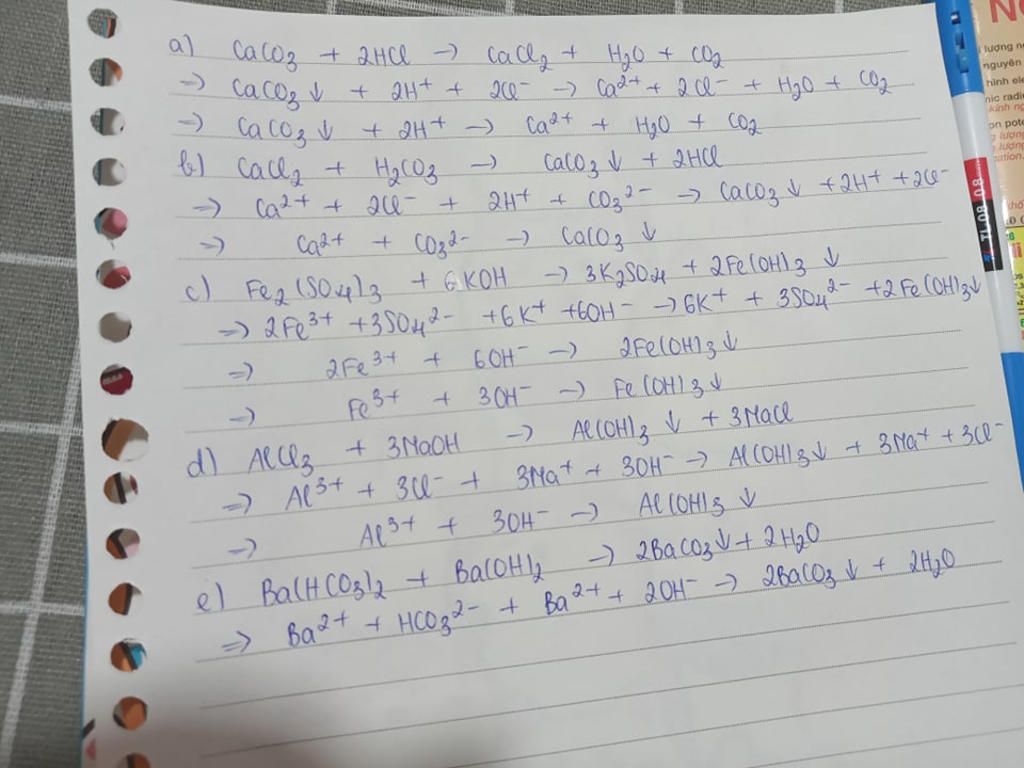 a) CaCO3 + 2HCl → CaCl2 + H2O + CO2
⇒ CaCO3↓ + 2H+ + 2Cl- → Ca2+ + 2Cl- + H2O + CO2
⇒ CaCO3↓ + 2H+ → Ca2+ + H2O + CO2
b) CaCl2 + H2CO3 → CaCO3↓ + 2HCl
⇒ Ca2+ + 2Cl- + 2H+ + CO3 2- → CaCO3↓ + 2H+ + 2Cl-
⇒ Ca2+ + CO3 2- → CaCO3↓
c) Fe2(SO4)3 + 6KOH → 3K2SO4 + 2Fe(OH)3↓
⇒ 2Fe3+ + 3SO4 2- + 6K+ + 6OH- → 6K+ + 3SO4 2- + 2Fe(OH)3↓
⇒ 2Fe3+ + 6OH- → 2Fe(OH)3↓
⇒ Fe3+ + 3OH- → Fe(OH)3↓
d) AlCl3 + 3NaOH → Al(OH)3↓ + 3NaCl
⇒ Al3+ + 3Cl- + 3Na+ + 3OH- → Al(OH)3↓ + 3Na+ + 3Cl-
⇒ Al3+ + 3OH- → Al(OH)3↓
e) Ba(HCO3)2 + Ba(OH)2 → 2BaCO3↓ + 2H2O
⇒ Ba2+ + HCO3 2- + Ba2+ + 2OH- → 2BaCO3↓ + 2H2O
TL 08
0.8
lượng
nguyên
kính
lượng